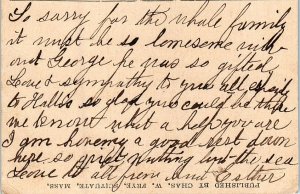 So sorry for the whole family
it must be so lonesome with
out George he was so gifted
Love & sympathy to you all again
to Halls so glad you could be there
we know what a help you are
I am having a good rest down
here so quiet nothing but the sea
Love to all from Aunt Esther
PUBLISHED BY CHAS. W. FRYE, SCITUATE, MASS.